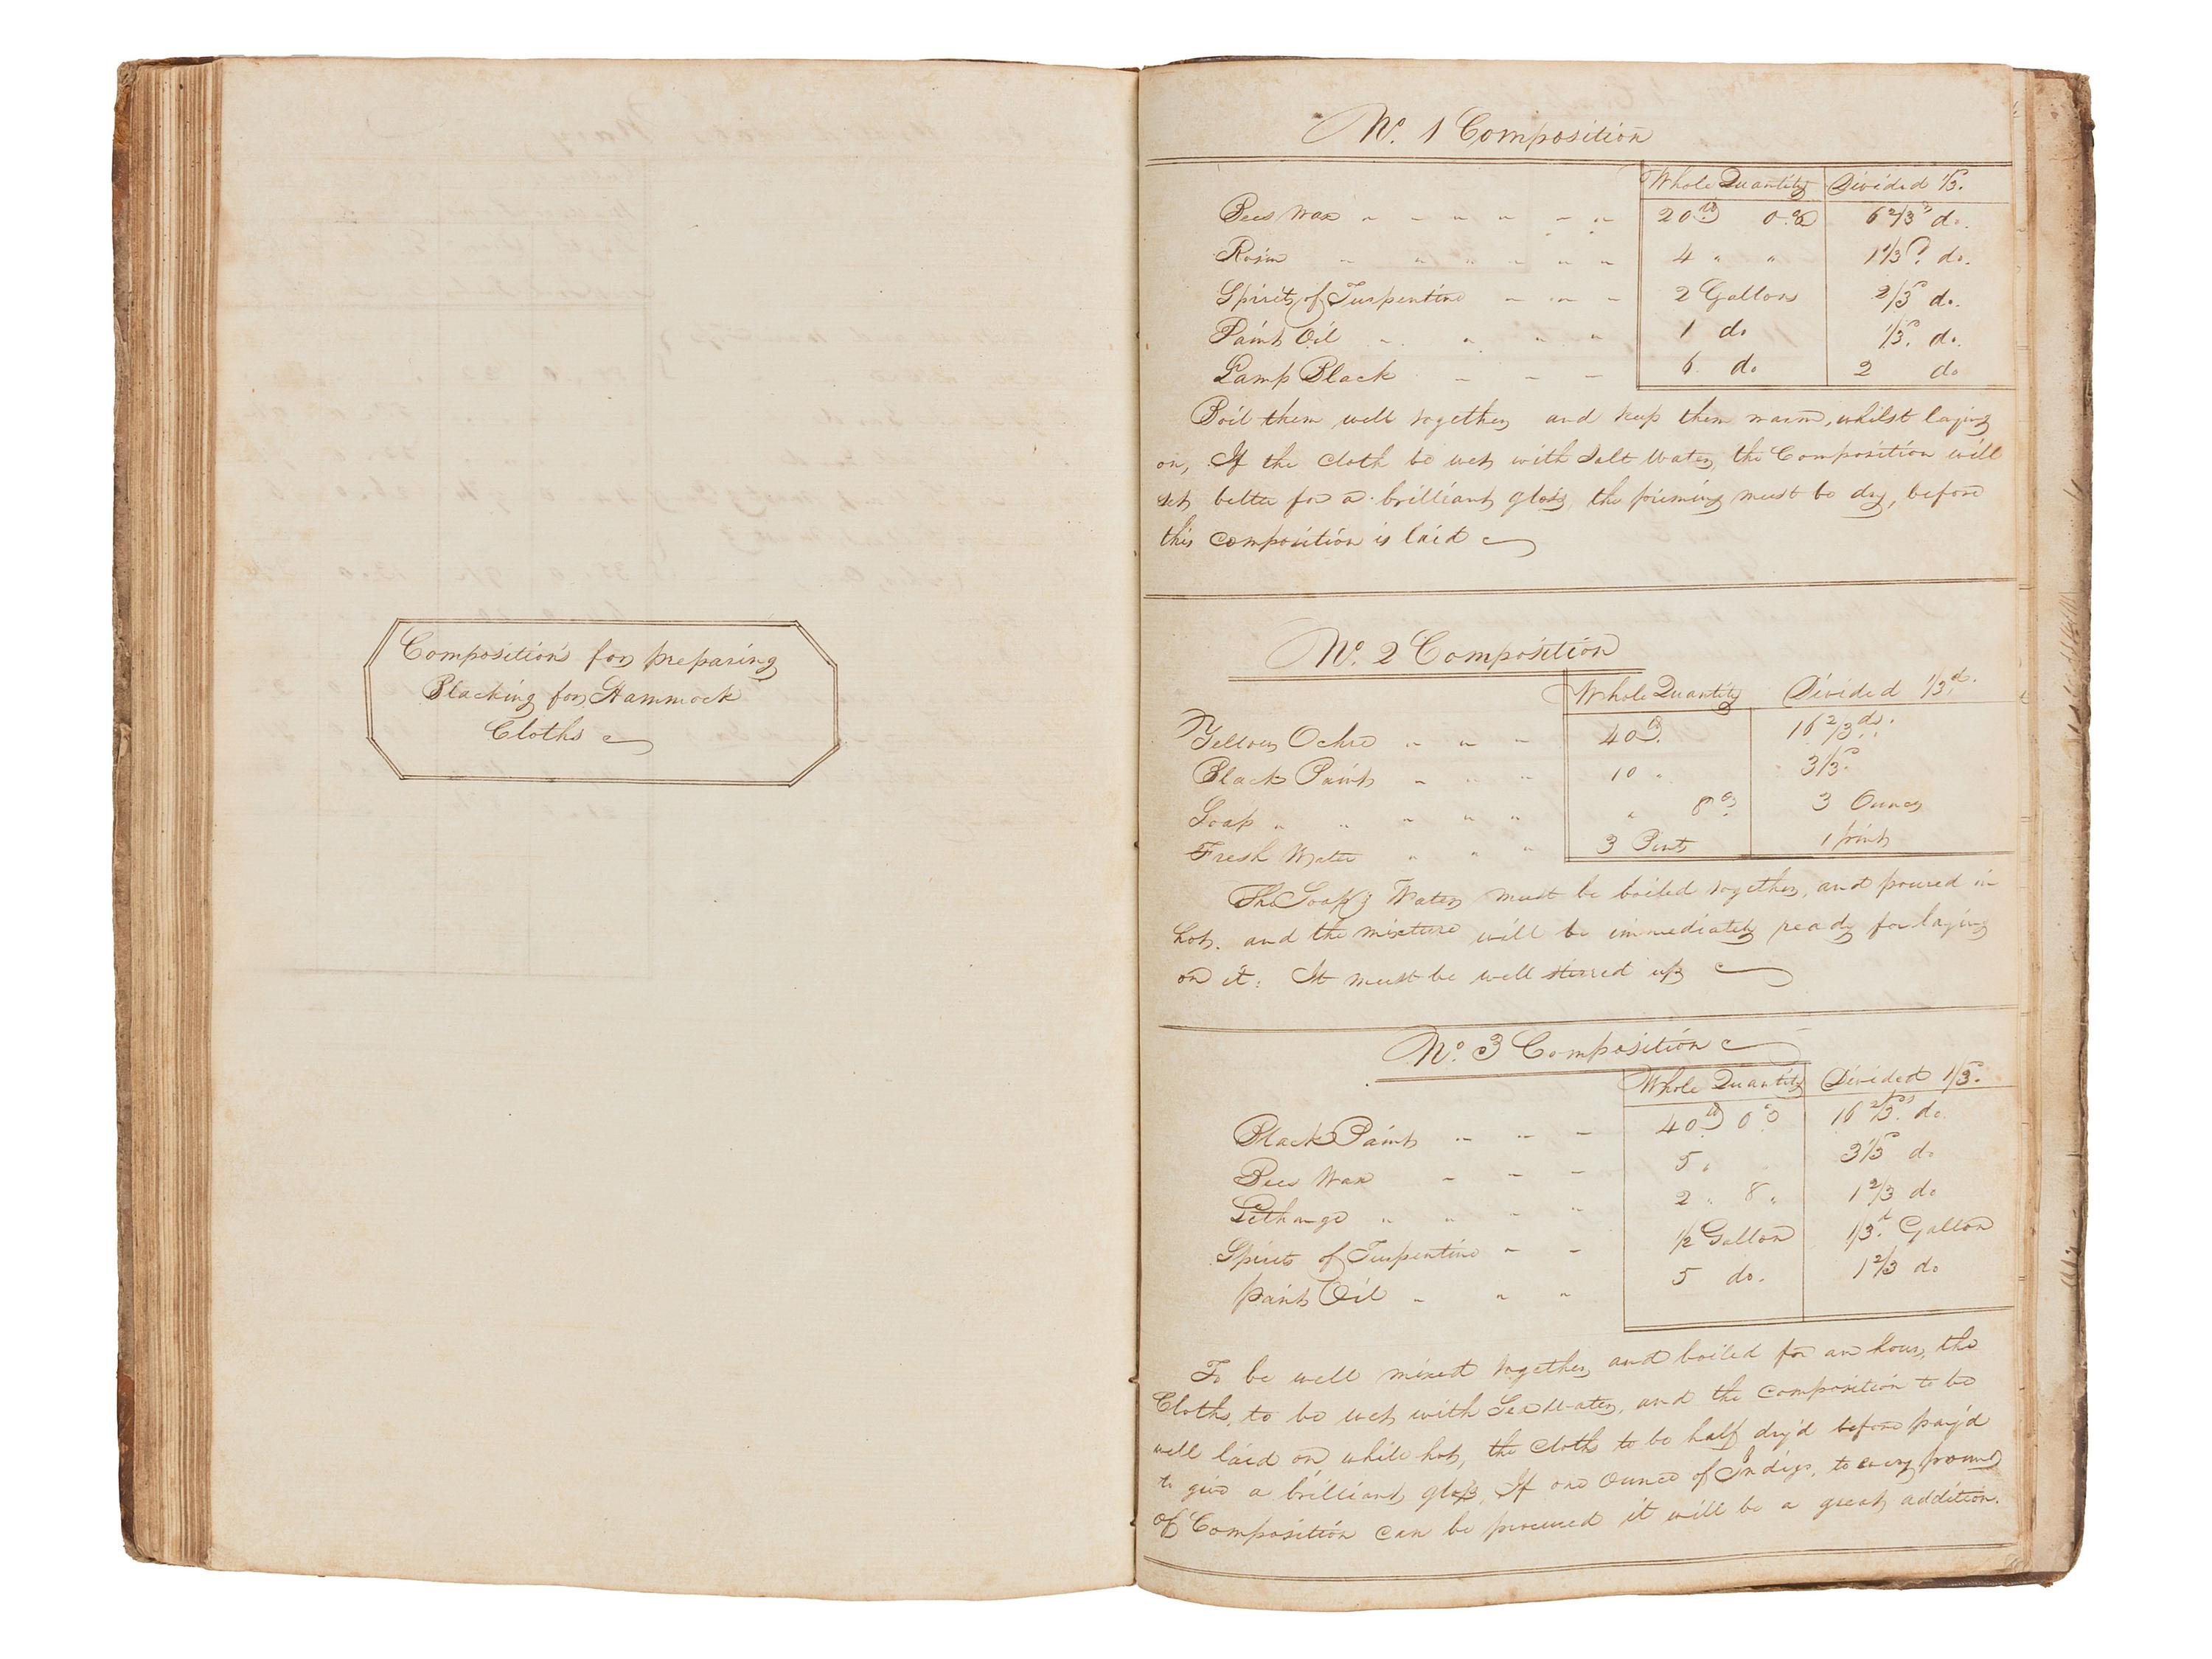 Compositions for preparing
Blacking for Hammock
Cloths
No. 1 Composition
Whole Quantity Divided 1/3.
Bees Wax " " " " " " 20 lb 0 oz 6 2/3 do.
Rosin " " " " " " 4 " " 1 1/3 do.
Spirits of Turpentine " " " 2 Gallons 2/3 do.
Paint Oil " " " " 1 do 1/3. do.
Lamp Black - - - 6 do 2 do
Boil them well together and keep them warm, whilst laying
on, If the cloth be wet with Salt Water, the Composition will
set better for a brilliant gloss, the priming must be dry, before
this composition is laid
No. 2 Composition
Whole Quantity Divided 1/3d.
Yellow Ochre " " " 40 lb. 16 2/3ds.
Black Paint " " " 10 " 3 1/3
Soap " " " " " " 8 oz 3 Ounces
Fresh Water " " " 3 Pints 1 pint
The Soap & Water must be boiled together, and poured in
hot. and the mixture will be immediately ready for laying
on it: It must be well stirred up
No. 3 Composition
Whole Quantity Divided 1/3.
Black Paint " " - 40 lb 0 oz 16 2/3. do.
Bees Wax - - - 5 " 3 1/3 do
Litharge " " " " 2 " 8 " 1 2/3 do
Spirits of Turpentine " - 1/2 Gallon 1/3d. Gallon
paint Oil " " " 5 do. 1 2/3 do
To be well mixed together, and boiled for an hour, the
Cloths, to be wet with Sea Water, and the composition to be
well laid on while hot, the cloth to be half dry'd before pay'd
to give a brilliant gloss, If one Ounce of Indigo, to every pound
of Composition can be procured it will be a great addition.